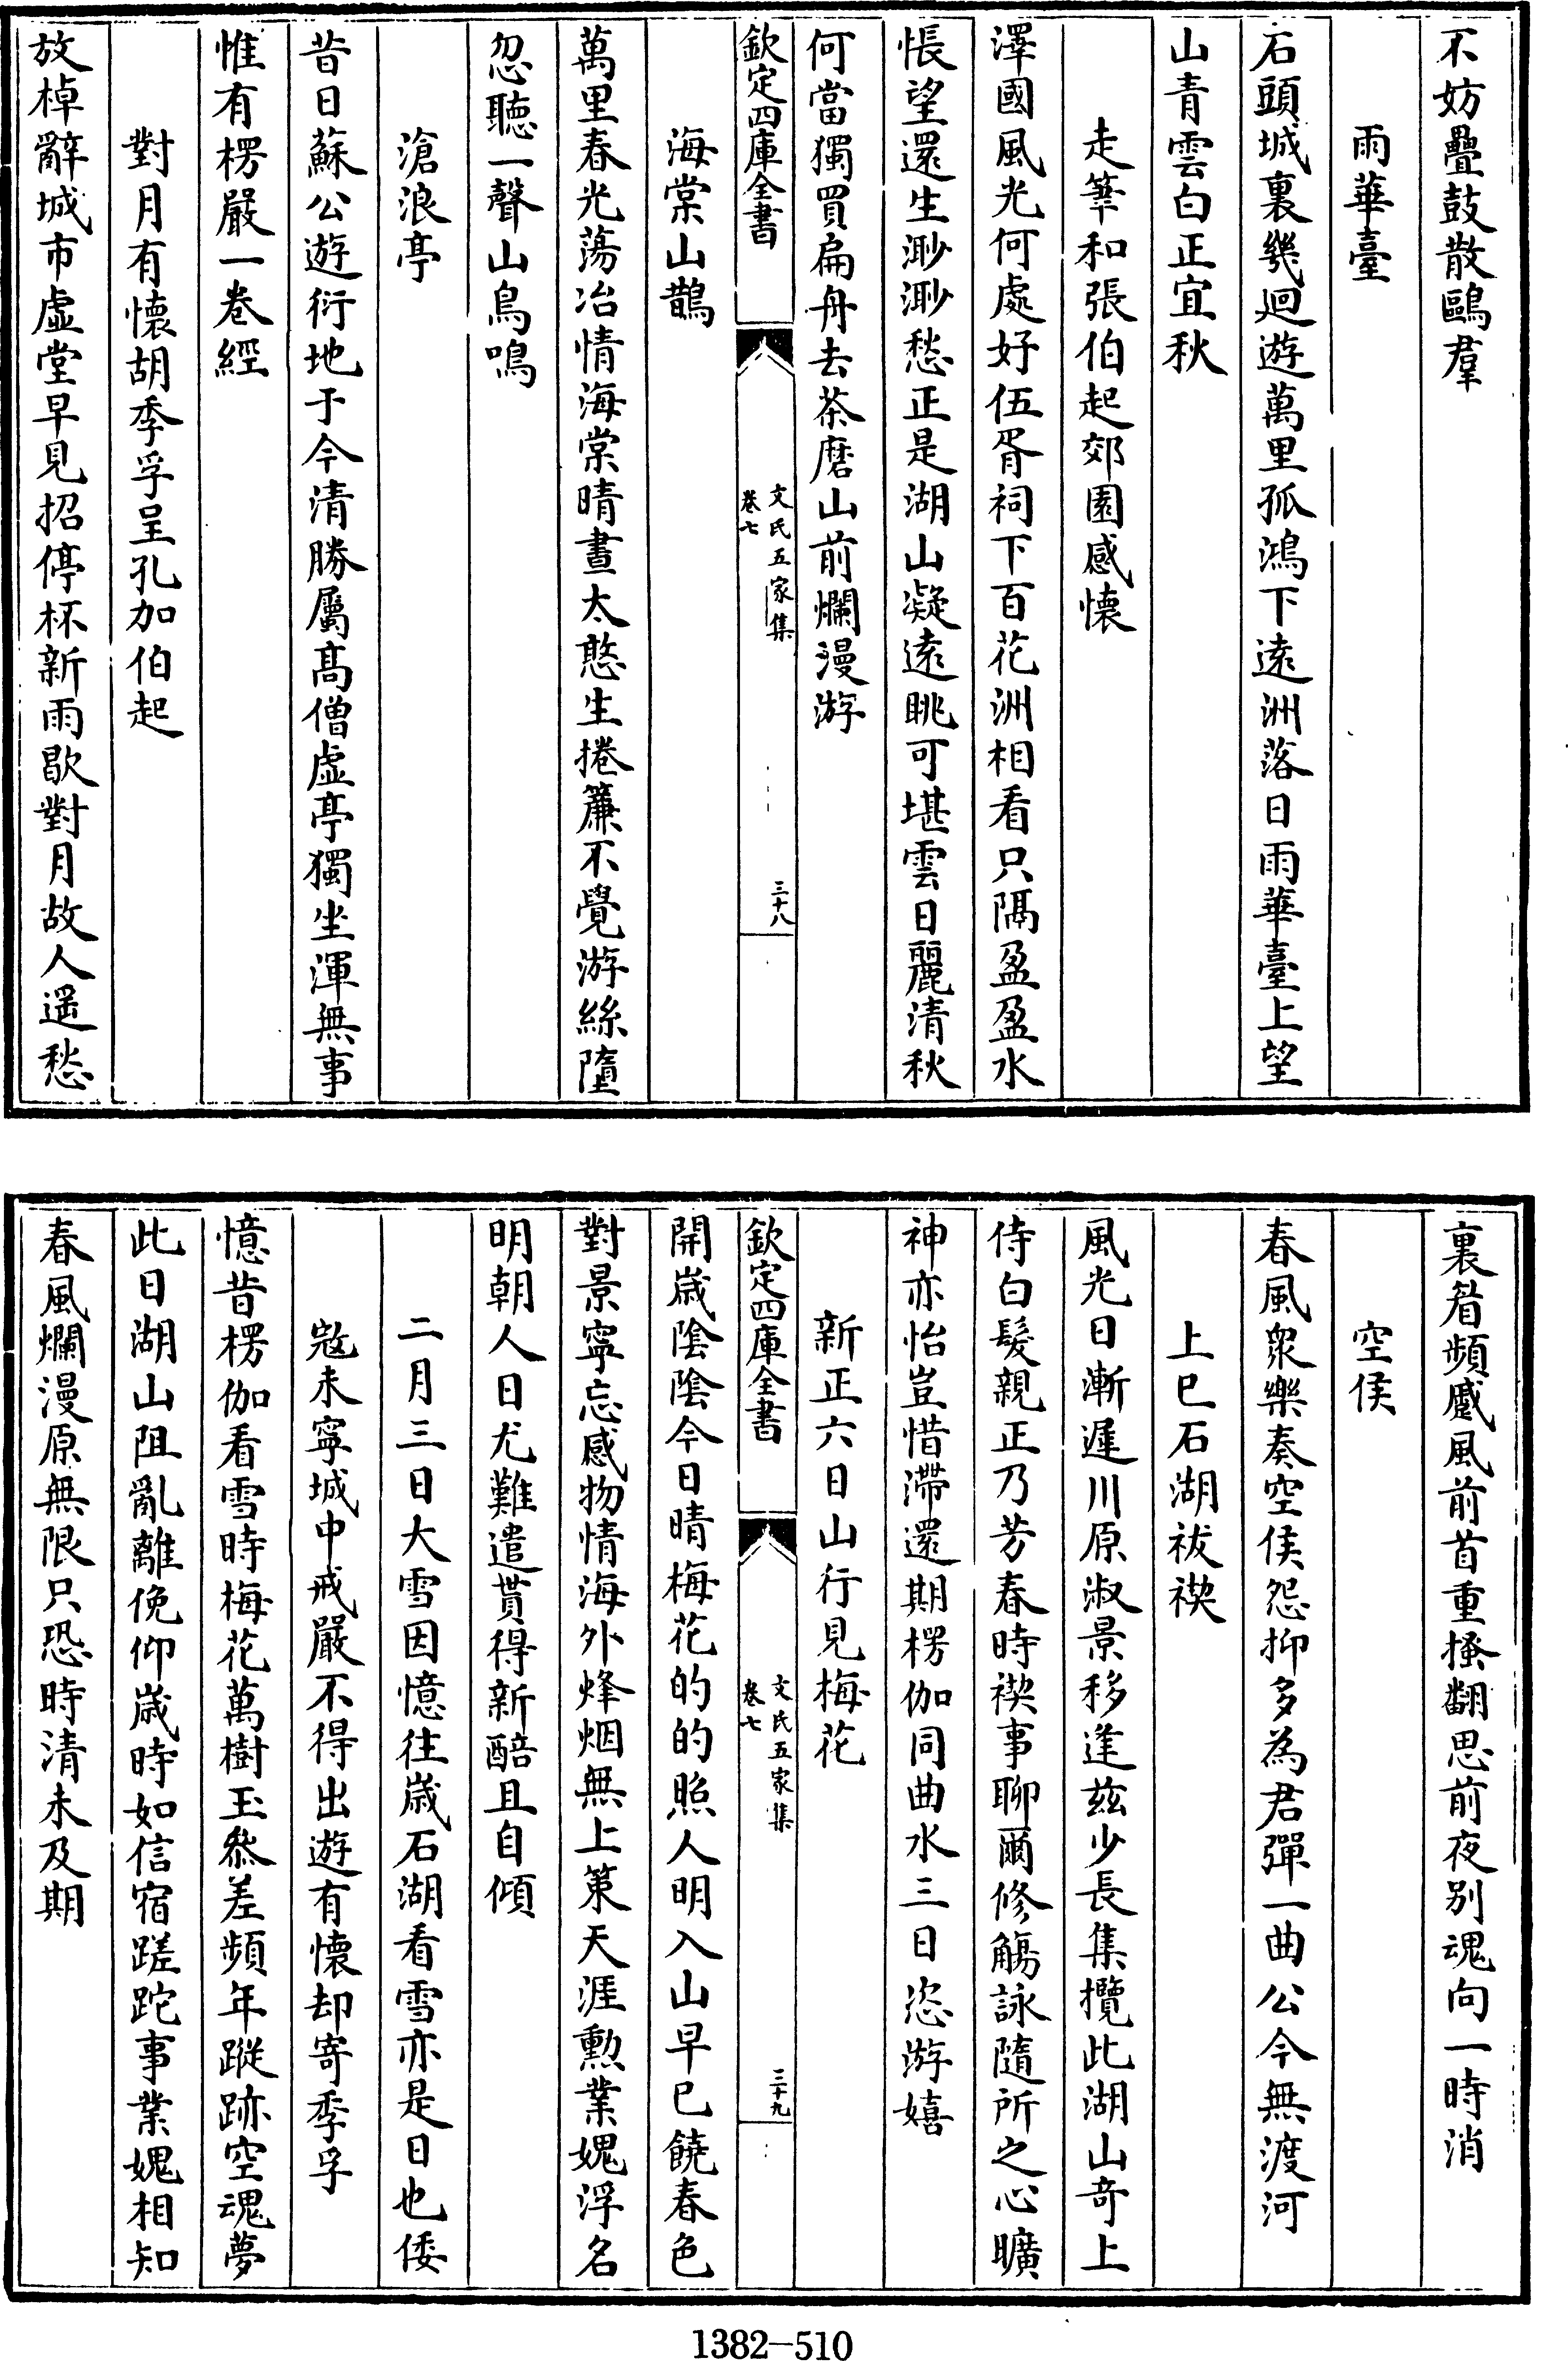 不妨疊鼓散鷗羣
雨華臺
石頭城裏幾迴遊萬里孤鴻下遠洲落日雨華臺上望
山青雲白正宜秋
走筆和張伯起郊園感懷
澤國風光何處好伍胥祠下百花洲相看只隔盈盈水
悵望還生渺渺愁正是湖山凝遠眺可堪雲日麗清秋
何當獨買扁舟去茶磨山前爛漫游
欽定四庫全書
文氏五家集
卷七
三十八
海棠山鵲
萬里春光蕩冶情海棠晴晝太憨生捲簾不覺游絲墮
忽聽一聲山鳥鳴
滄浪亭
昔日蘇公遊衍地于今清勝屬髙僧虛亭獨坐渾無事
惟有楞嚴一卷經
對月有懷胡季孚呈孔加伯起
放棹辭城市虛堂早見招停杯新雨歇對月故人遥愁
裏眉頻蹙風前首重搔翻思前夜别魂向一時消
空侯
春風衆樂奏空侯怨抑多為君彈一曲公今無渡河
上巳石湖祓禊
風光日漸遲川原淑景移逢兹少長集攬此湖山奇上
侍白髮親正乃芳春時禊事聊爾修觴詠隨所之心曠
神亦怡豈惜滯還期楞伽同曲水三日恣游嬉
新正六日山行見梅花
欽定四庫全書
文氏五家集
卷七
三十九
開歲陰陰今日晴梅花的的照人明入山早已饒春色
對景寧忘感物情海外烽烟無上策天涯勲業媿浮名
明朝人日尤難遣貰得新醅且自傾
二月三日大雪因憶往歲石湖看雪亦是日也倭
寇未寧城中戒嚴不得出遊有懷却寄季孚
憶昔楞伽看雪時梅花萬樹玉叅差頻年蹤跡空魂夢
此日湖山阻亂離俛仰歲時如信宿蹉跎事業媿相知
春風爛漫原無限只恐時清未及期
1382-510